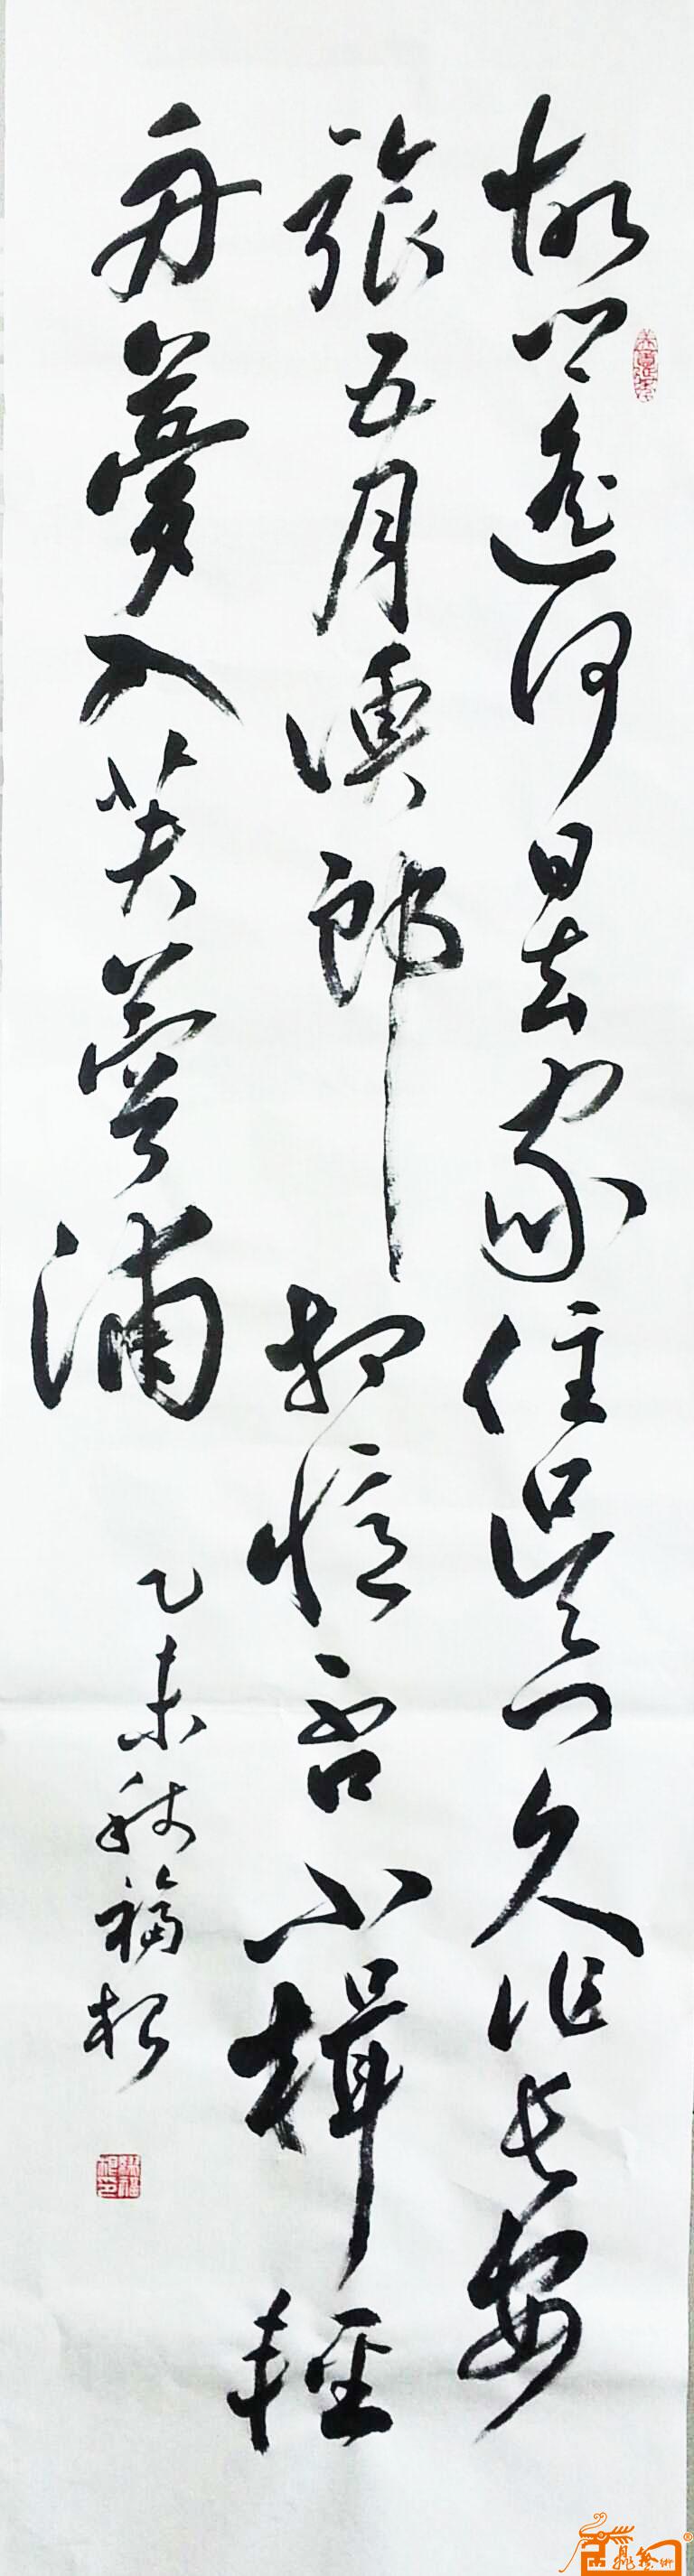 故鄉遙何日去家住吳門久作長安
旅五月漁郎相憶否小楫輕
舟夢入芙蓉浦
乙未秋福